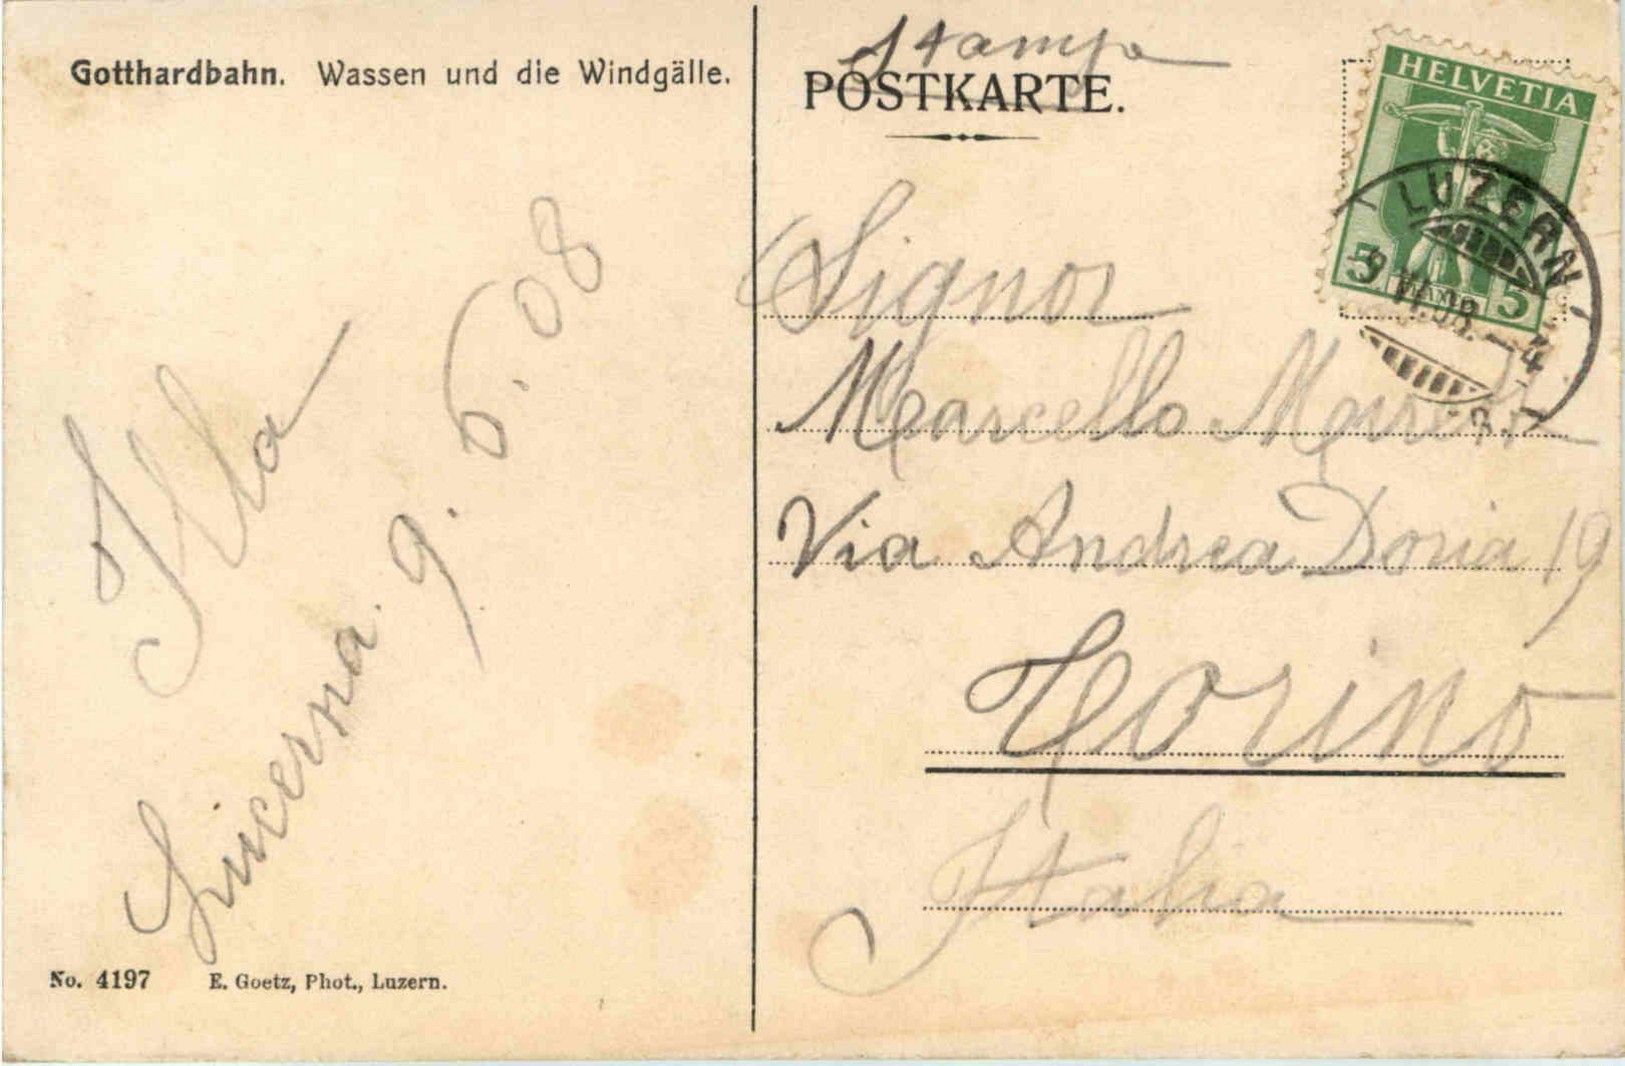 Gotthardbahn. Wassen und die Windgälle.
Illa
Lucerna. 9. 6. 08
No. 4197 E. Goetz, Phot., Luzern.
Stampa
POSTKARTE.
HELVETIA
5 5
LUZERN
-9.VI.08.-4
Signor
Marcello
Via Andrea Doria 19
Torino
Italia